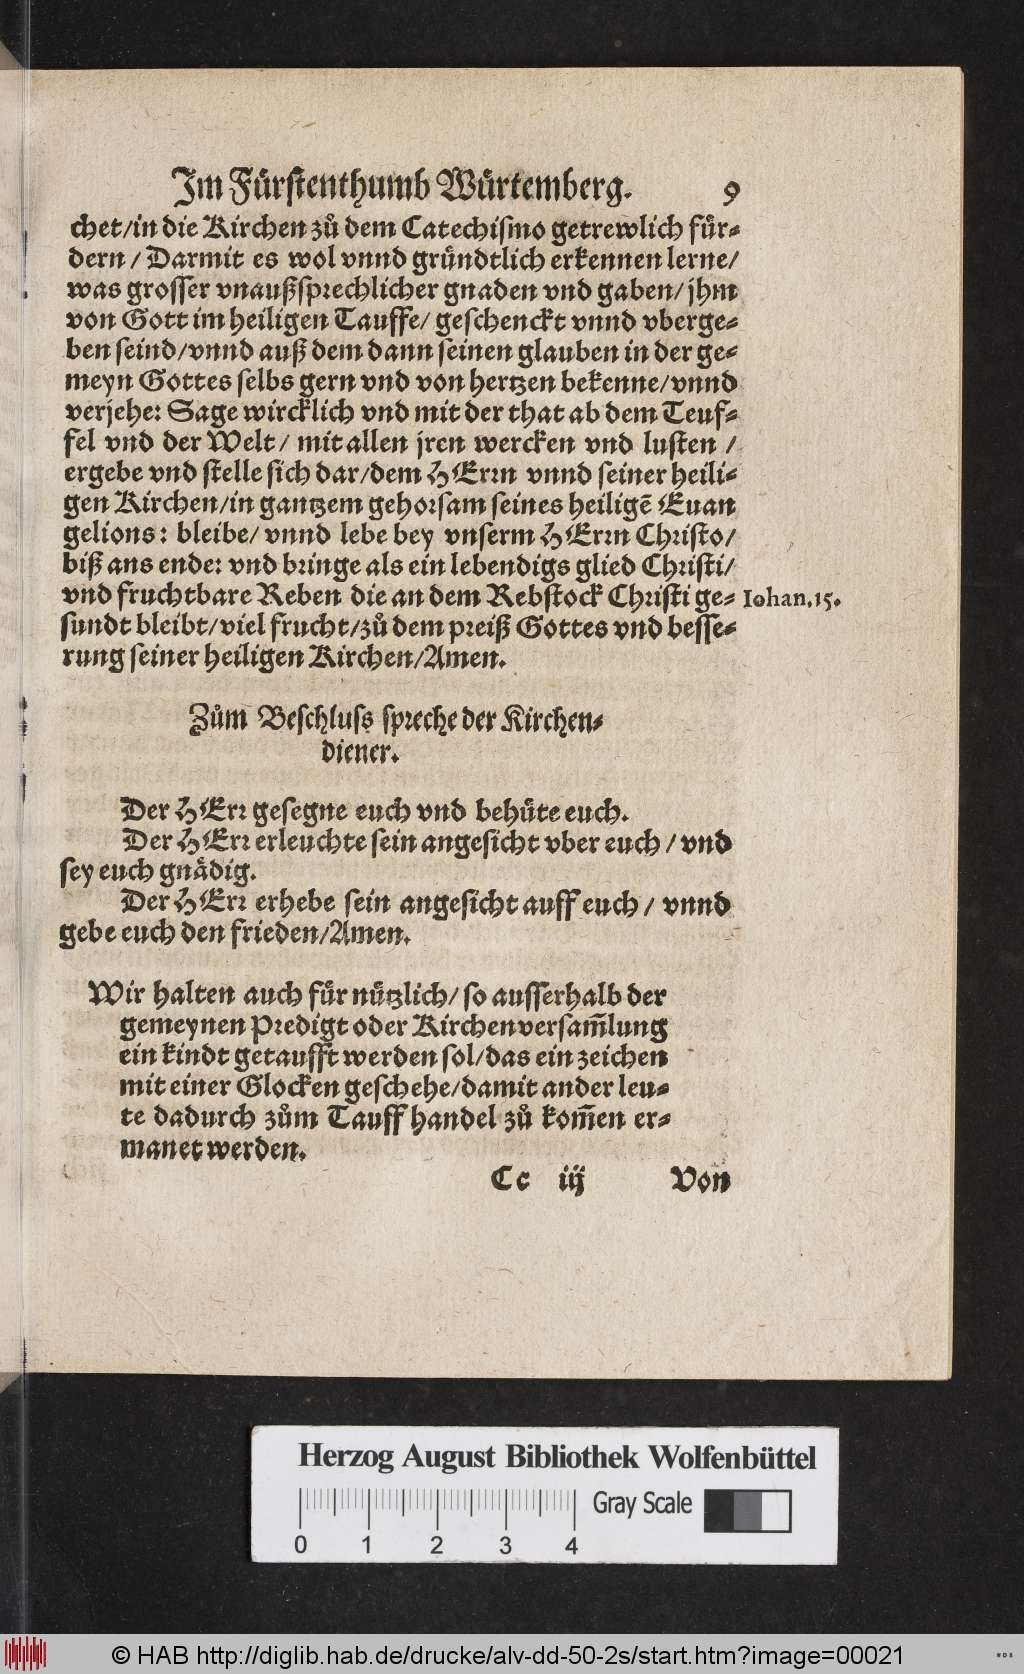 Im Fürstenthumb Würtemberg. 9
chet/in die Kirchen zů dem Catechismo getrewlich für-
dern / Darmit es wol vnnd gründtlich erkennen lerne/
was grosser vnaußsprechlicher gnaden vnd gaben/ jhm
von Gott im heiligen Tauffe/ geschenckt vnnd vberge-
ben seind/vnnd auß dem dann seinen glauben in der ge-
meyn Gottes selbs gern vnd von hertzen bekenne/vnnd
verjehe: Sage wircklich vnd mit der that ab dem Teuf-
fel vnd der Welt/ mit allen jren wercken vnd lusten /
ergebe vnd stelle sich dar/dem HErrn vnnd seiner heili-
gen Kirchen/in gantzem gehorsam seines heiligẽ Euan
gelions: bleibe/ vnnd lebe bey vnserm HErrn Christo/
biß ans ende: vnd bringe als ein lebendigs glied Christi/
vnd fruchtbare Reben die an dem Rebstock Christi ge- Iohan.15.
sundt bleibt/viel frucht/zů dem preiß Gottes vnd besse-
rung seiner heiligen Kirchen/Amen.
Zům Beschluss spreche der Kirchen-
diener.
Der HErr gesegne euch vnd behüte euch.
Der HErr erleuchte sein angesicht vber euch / vnd
sey euch gnädig.
Der HErr erhebe sein angesicht auff euch / vnnd
gebe euch den frieden/Amen.
Wir halten auch für nützlich/ so ausserhalb der
gemeynen Predigt oder Kirchenversam̃lung
ein kindt getaufft werden sol/das ein zeichen
mit einer Glocken geschehe/damit ander leu-
te dadurch zům Tauff handel zů kom̃en er-
manet werden.
Cc iij Von
Herzog August Bibliothek Wolfenbüttel
Gray Scale
0 1 2 3 4
© HAB http://diglib.hab.de/drucke/alv-dd-50-2s/start.htm?image=00021